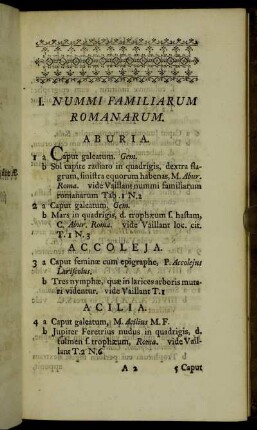 I. NUMMI FAMILIARUM
ROMANARUM.
ABURIA.
1 a Caput galeatum. Gem.
b Sol capite radiato in quadrigis, dextra fla-
grum, sinistra equorum habenas. M. Abur.
Roma. vide Vaillant nummi familiarum
romanarum Tab. 1 N.2
2 a Caput galeatum, Gem.
b Mars in quadrigis, d. trophæum s. hastam,
C. Abur. Roma. vide Vaillant loc. cit.
T.1 N.3
ACCOLEJA.
3 a Caput feminæ cum epigraphe, P. Accolejus
Lariscolus.
b Tres nymphæ, quæ in larices arbores muta-
ri videntur. vide Vaillant T.1
ACILIA.
4 a Caput galeatum, M. Acilius M.F.
b Jupiter Feretrius nudus in quadrigis, d.
fulmen s. trophæum, Roma. vide Vail-
lant T.2 N.6
A 2 5 Caput